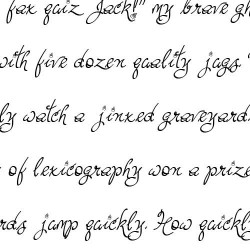 fax quiz Jack!" my brave gh
with five dozen quality jugs
ly watch a jinxed graveyard
of lexicography won a prize
rds jump quickly. How quickly